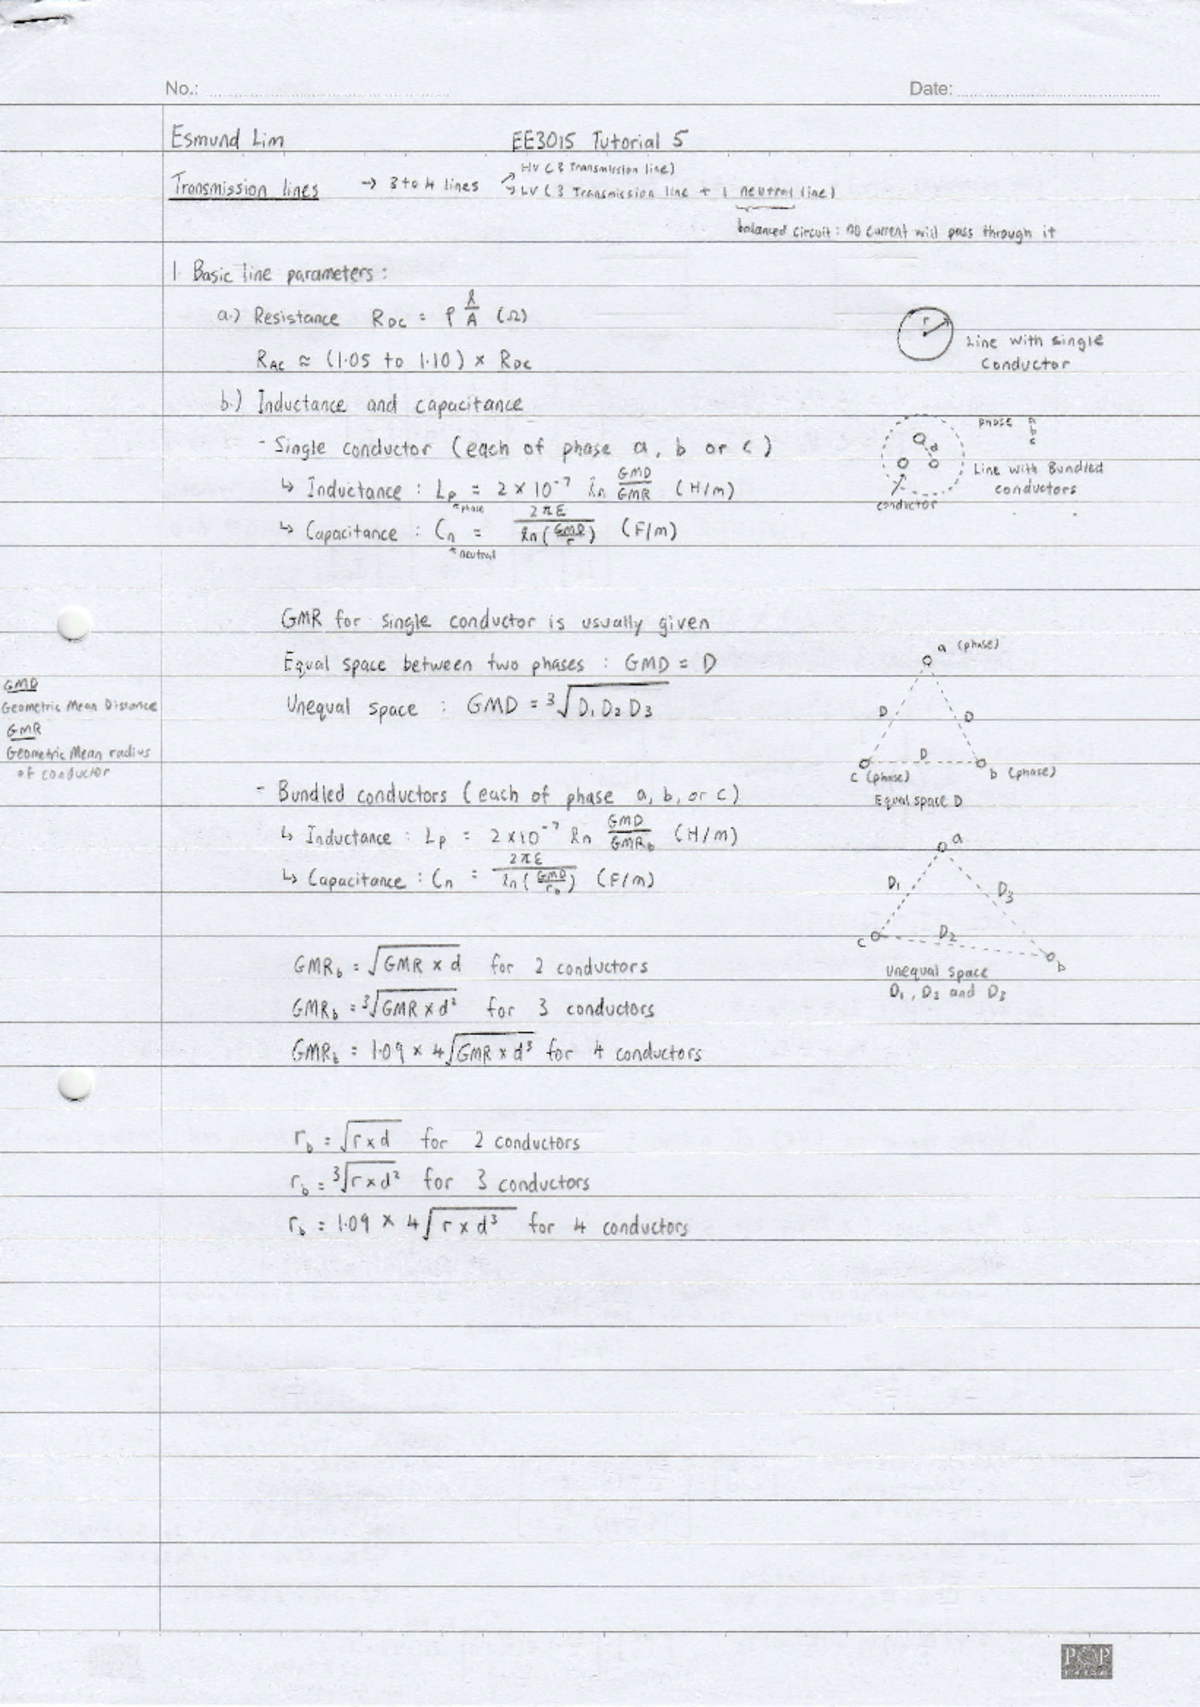 No.: Date:
Esmund Lim EE3015 Tutorial 5
Transmission lines → 3 to 4 lines ↗ HV (3 Transmission line)
↘ LV (3 Transmission line + 1 neutral line)
balanced circuit : no current will pass through it
1. Basic line parameters :
a.) Resistance R_DC = ρ l/A (Ω)
R_AC ≈ (1.05 to 1.10) × R_DC
r
Line with single
conductor
b.) Inductance and capacitance
- Single conductor (each of phase a, b or c)
↳ Inductance : L_p = 2 × 10^-7 ln GMD/GMR (H/m)
↖phase
↳ Capacitance : C_n = 2πε / ln(GMD/r) (F/m)
↖neutral
phase a
b
c
d
Line with Bundled
conductors
conductor
GMR for single conductor is usually given
Equal space between two phases : GMD = D
Unequal space : GMD = ³√D₁ D₂ D₃
GMD
Geometric Mean Distance
GMR
Geometric Mean radius
of conductor
a (phase)
D D
D
c (phase) b (phase)
Equal space D
- Bundled conductors (each of phase a, b, or c)
↳ Inductance : L_p = 2 × 10^-7 ln GMD/GMR_b (H/m)
↳ Capacitance : C_n = 2πε / ln(GMD/r_b) (F/m)
a
D₁ D₃
D₂
c b
Unequal space
D₁, D₂ and D₃
GMR_b = √GMR × d for 2 conductors
GMR_b = ³√GMR × d² for 3 conductors
GMR_b = 1.09 × 4√GMR × d³ for 4 conductors
r_b = √r × d for 2 conductors
r_b = ³√r × d² for 3 conductors
r_b = 1.09 × 4√r × d³ for 4 conductors
POP